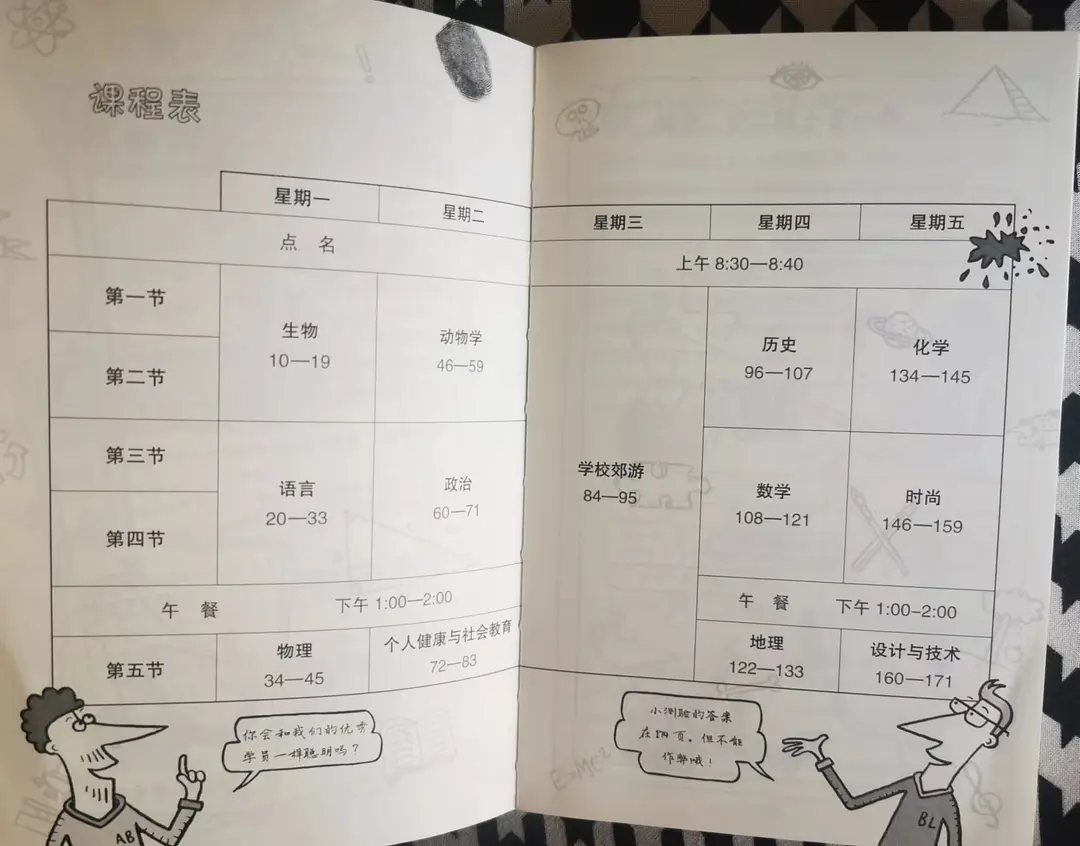 课程表
星期一 星期二 星期三 星期四 星期五
点 名 上午 8:30—8:40
第一节
第二节
生物
10—19
动物学
46—59
历史
96—107
化学
134—145
第三节
第四节
语言
20—33
政治
60—71
学校郊游
84—95
数学
108—121
时尚
146—159
午 餐 下午 1:00—2:00
午 餐 下午 1:00–2:00
第五节
物理
34—45
个人健康与社会教育
72—83
地理
122—133
设计与技术
160—171
你会和我们的优秀
学员一样聪明吗?
小测验的答案
在 页。但不能
作弊哦!
AB
BL
E=MC²